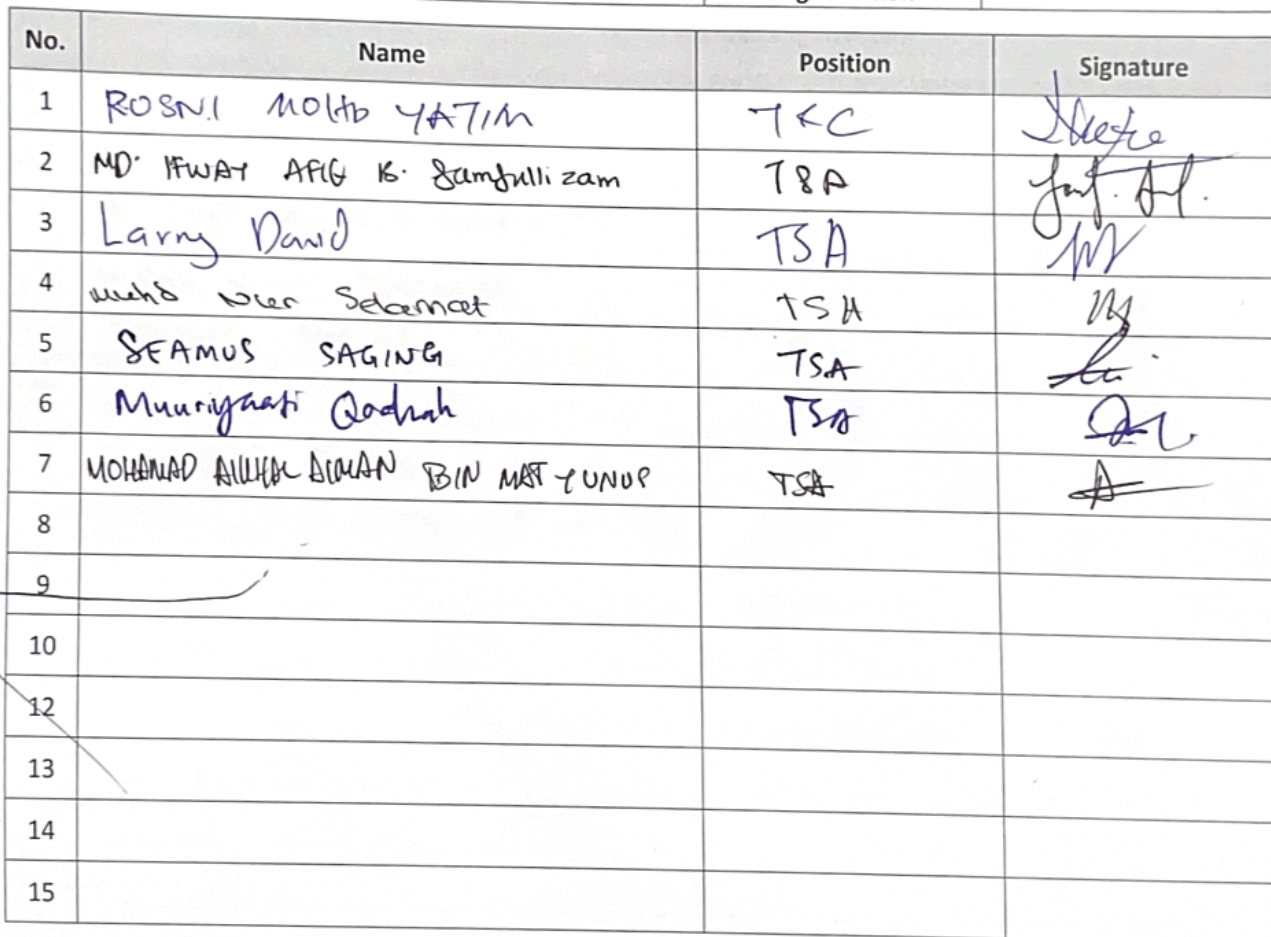 No. Name Position Signature
1 ROSNI MOHD YATIM TKC
2 MD. AFIQ B. Samfullizam TSA
3 Larry David TSA
4 Selamat TSA
5 SEAMUS SAGING TSA
6 Qadrah TSA
7 MOHAMAD BIN MAT YUNUS TSA
8
9
10
12
13
14
15